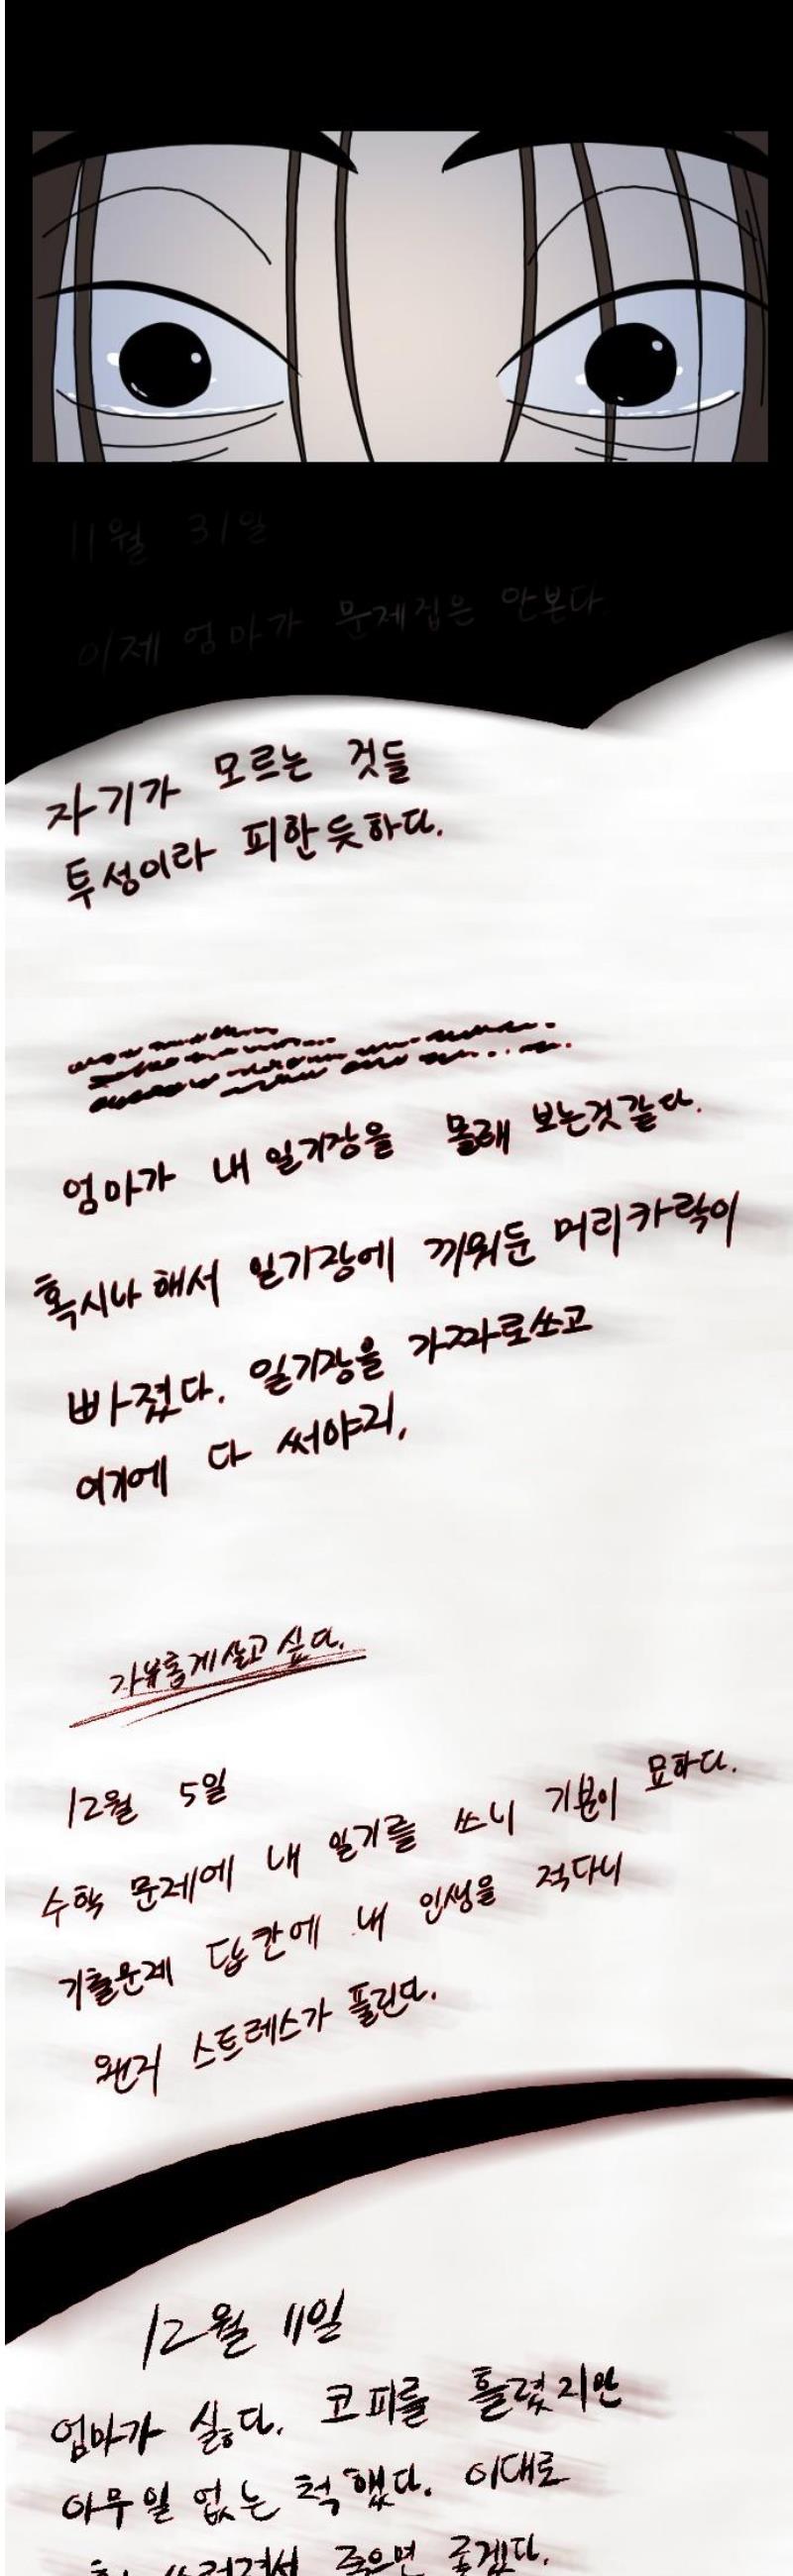 11월 31일
이제 엄마가 문제집은 안본다.
자기가 모르는 것들
투성이라 피한듯하다.
엄마가 내 일기장을 몰래 보는것같다.
혹시나해서 일기장에 끼워둔 머리카락이
빠졌다. 일기장을 가짜로쓰고
여기에 다 써야지,
자유롭게살고싶다.
12월 5일
수학 문제에 내 일기를 쓰니 기분이 묘하다.
기출문제 답칸에 내 인생을 적다니
왠지 스트레스가 풀린다.
12월 11일
엄마가 싫다. 코피를 흘렸지만
아무일 없는 척했다. 이대로
쓰러져서 죽으면 좋겠다.